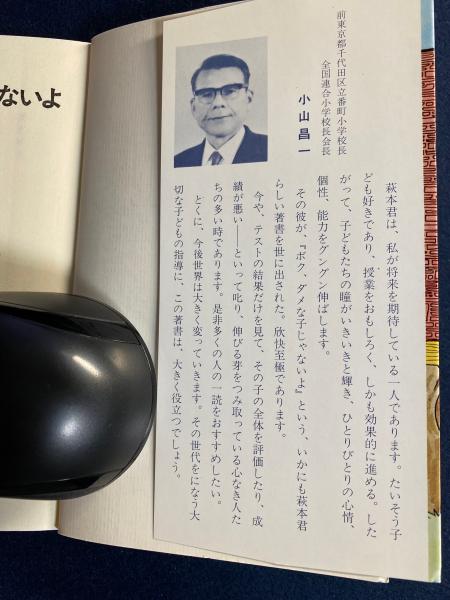 前東京都千代田区立番町小学校長
全国連合小学校長会長
小山昌一
萩本君は、私が将来を期待している一人であります。たいそう子
ども好きであり、授業をおもしろく、しかも効果的に進める。した
がって、子どもたちの瞳がいきいきと輝き、ひとりびとりの心情、
個性、能力をグングン伸ばします。
その彼が、『ボク、ダメな子じゃないよ』という、いかにも萩本君
らしい著書を世に出された。欣快至極であります。
今や、テストの結果だけを見て、その子の全体を評価したり、成
績が悪い――といって叱り、伸びる芽をつみ取っている心なき人た
ちの多い時であります。是非多くの人の一読をおすすめしたい。
とくに、今後世界は大きく変っていきます。その世代をになう大
切な子どもの指導に、この著書は、大きく役立つでしょう。
ないよ